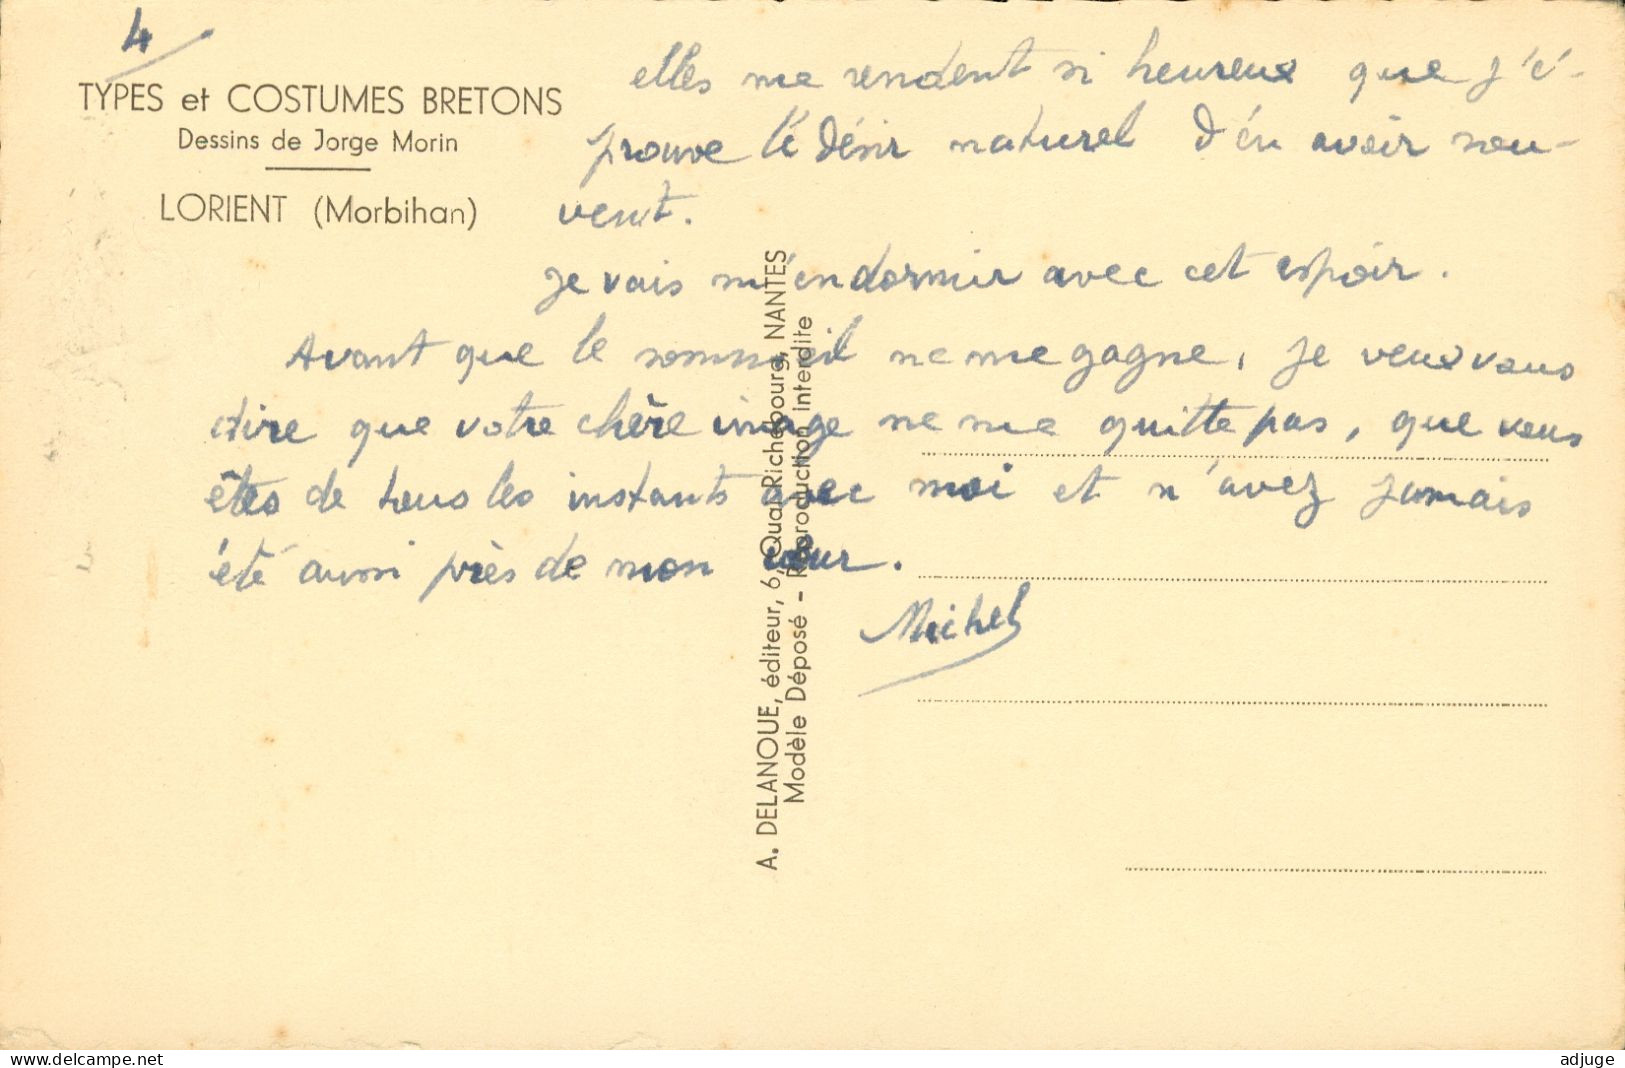 4
TYPES et COSTUMES BRETONS
Dessins de Jorge Morin
LORIENT (Morbihan)
elles me rendent si heureux que j'é-
prouve le désir naturel d'en avoir sou-
vent.
je vais m'endormir avec cet espoir.
Avant que le sommeil ne me gagne, je veux vous
dire que votre chère image ne me quitte pas, que vous
êtes de tous les instants avec moi et n'avez jamais
été aussi près de mon cœur.
Michel
A. DELANOUE, éditeur, 6, Quai Richebourg, NANTES
Modèle Déposé - Reproduction interdite
delcampe.net
adjuge